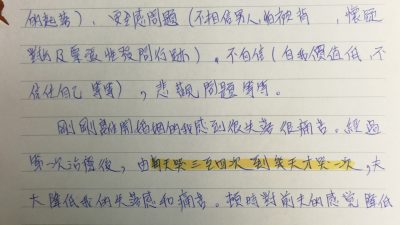 的起落），安全感問題（不相信男人的擁有，懷疑
對於及要查性發問行跡），不自信（自我價值低，不
信任自己等等），悲觀問題等等。
剛剛離開婚姻的我感到很失落很痛苦。經過
第一次治療後，由每天哭三至四次到幾天才哭一次，大
大降低我的失落感和痛苦。頓時對前夫的感覺降低